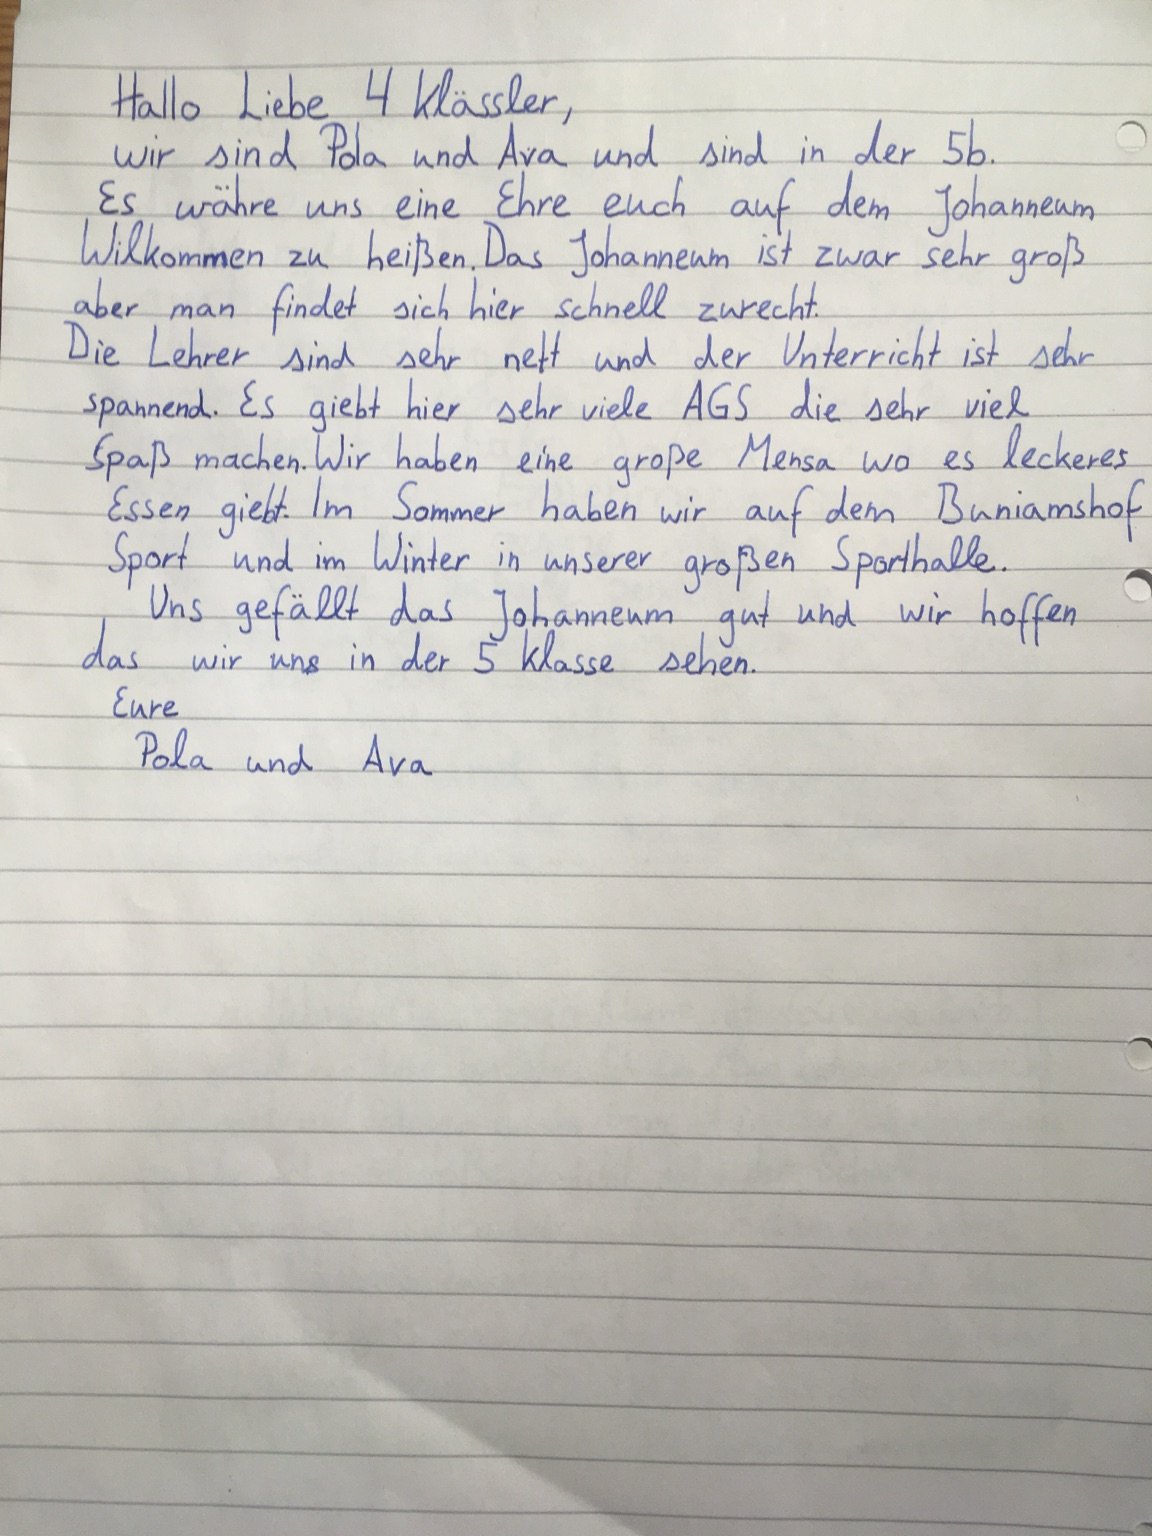 Hallo Liebe 4 Klässler,
wir sind Pola und Ava und sind in der 5b.
Es währe uns eine Ehre euch auf dem Johanneum
Wilkommen zu heißen. Das Johanneum ist zwar sehr groß
aber man findet sich hier schnell zurecht.
Die Lehrer sind sehr nett und der Unterricht ist sehr
spannend. Es giebt hier sehr viele AGS die sehr viel
Spaß machen. Wir haben eine große Mensa wo es leckeres
Essen giebt. Im Sommer haben wir auf dem Buniamshof
Sport und im Winter in unserer großen Sporthalle.
Uns gefällt das Johanneum gut und wir hoffen
das wir uns in der 5 klasse sehen.
Eure
Pola und Ava